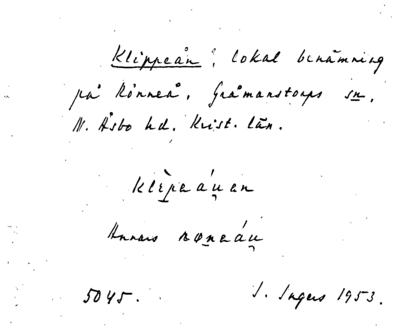 Klippeån, lokal benämning
på Rönneå, Gråmanstorps sn,
N. Åsbo hd. Krist. län.
klèpeáu̯en
Annars rø̱neáu̯
5045. I. Ingers 1953.